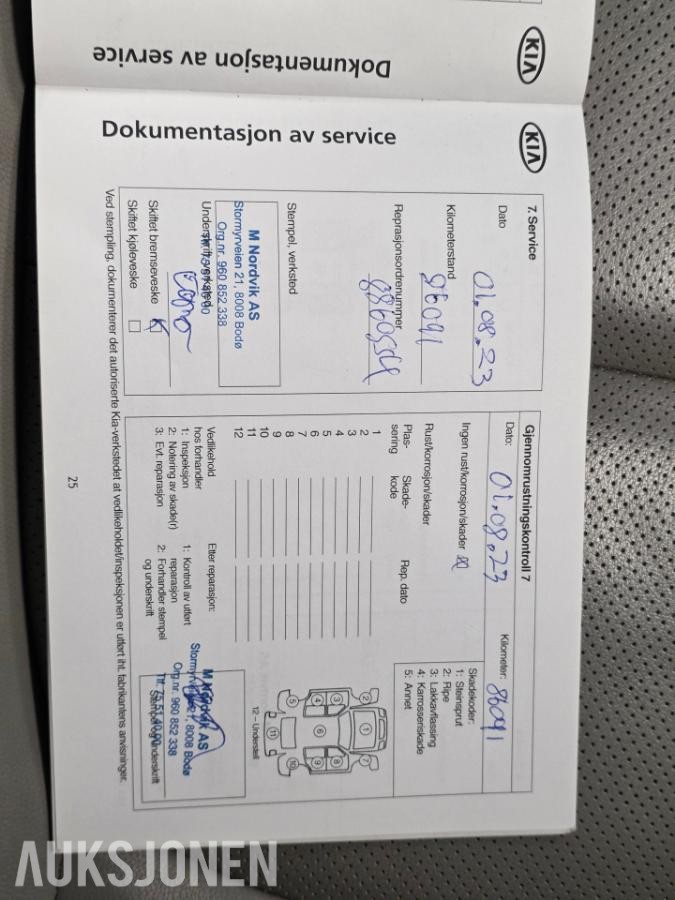 KIA
Dokumentasjon av service
KIA
Dokumentasjon av service
7. Service
Dato
01.08.23
Kilometerstand
86091
Reprasjonsordrenummer
Stempel, verksted
M Nordvik AS
Stormyrveien 21, 8008 Bodø
Org.nr. 960 852 338
Underskrift verksted
Skiftet bremsevæske
Skiftet kjølevæske
Gjennomrustningskontroll 7
Dato:
01.08.23
Kilometer:
86091
Ingen rust/korrosjon/skader
Rust/korrosjon/skader
Plas-
sering
Skade-
kode
Rep. dato
1
2
3
4
5
6
7
8
9
10
11
12
Skadekoder:
1: Steinsprut
2: Ripe
3: Lakkavflassing
4: Karrosseriskade
5: Annet
1
2
3
4
5
6
7
8
9
10
11
12 – Understell
Vedlikehold
hos forhandler
1: Inspeksjon
2: Notering av skade(r)
3: Evt. reparasjon
Etter reparasjon:
1: Kontroll av utført
reparasjon
2: Forhandler stempel
og underskrift
M Nordvik AS
Stormyrveien 21, 8008 Bodø
Org.nr. 960 852 338
Tlf. 75 51 40 00
Stempel og underskrift
Ved stempling, dokumenterer det autoriserte Kia-verkstedet at vedlikeholdet/inspeksjonen er utført iht. fabrikantens anvisninger.
25
AUKSJONEN